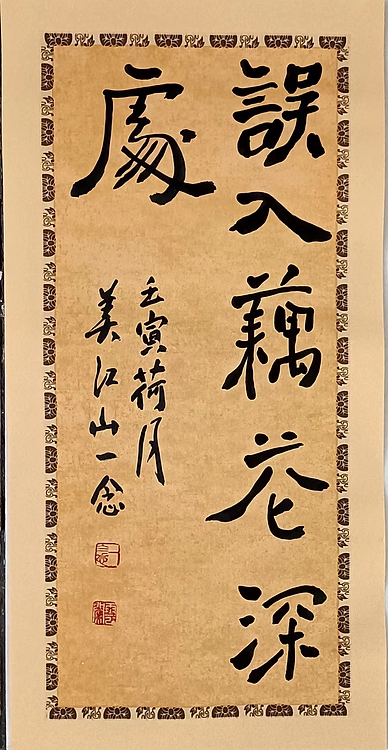 誤入藕花深
處
壬寅荷月
美江山一念